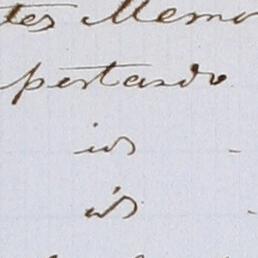 tes Memo
pertando
id -
id -